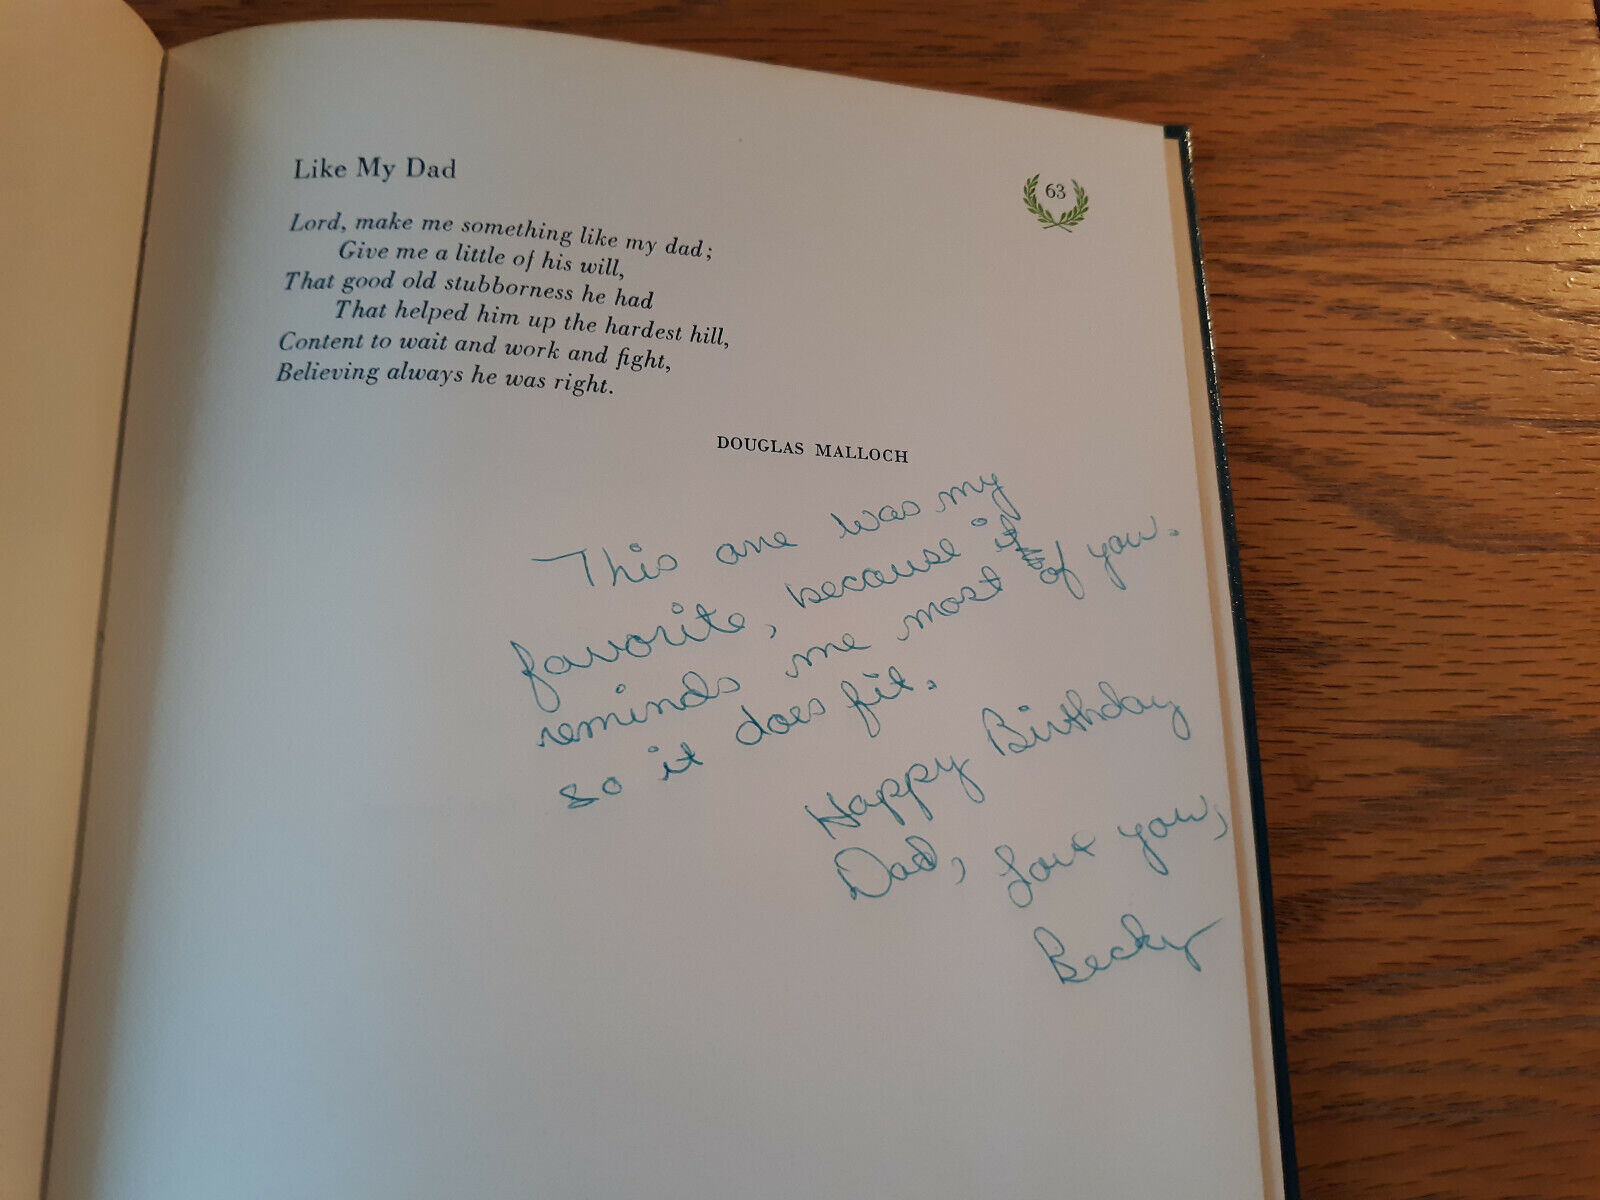 Like My Dad
63
Lord, make me something like my dad;
Give me a little of his will,
That good old stubborness he had
That helped him up the hardest hill,
Content to wait and work and fight,
Believing always he was right.
DOUGLAS MALLOCH
This one was my
favorite, because it
reminds me most of you.
so it does fit.
Happy Birthday
Dad, Love you,
Becky